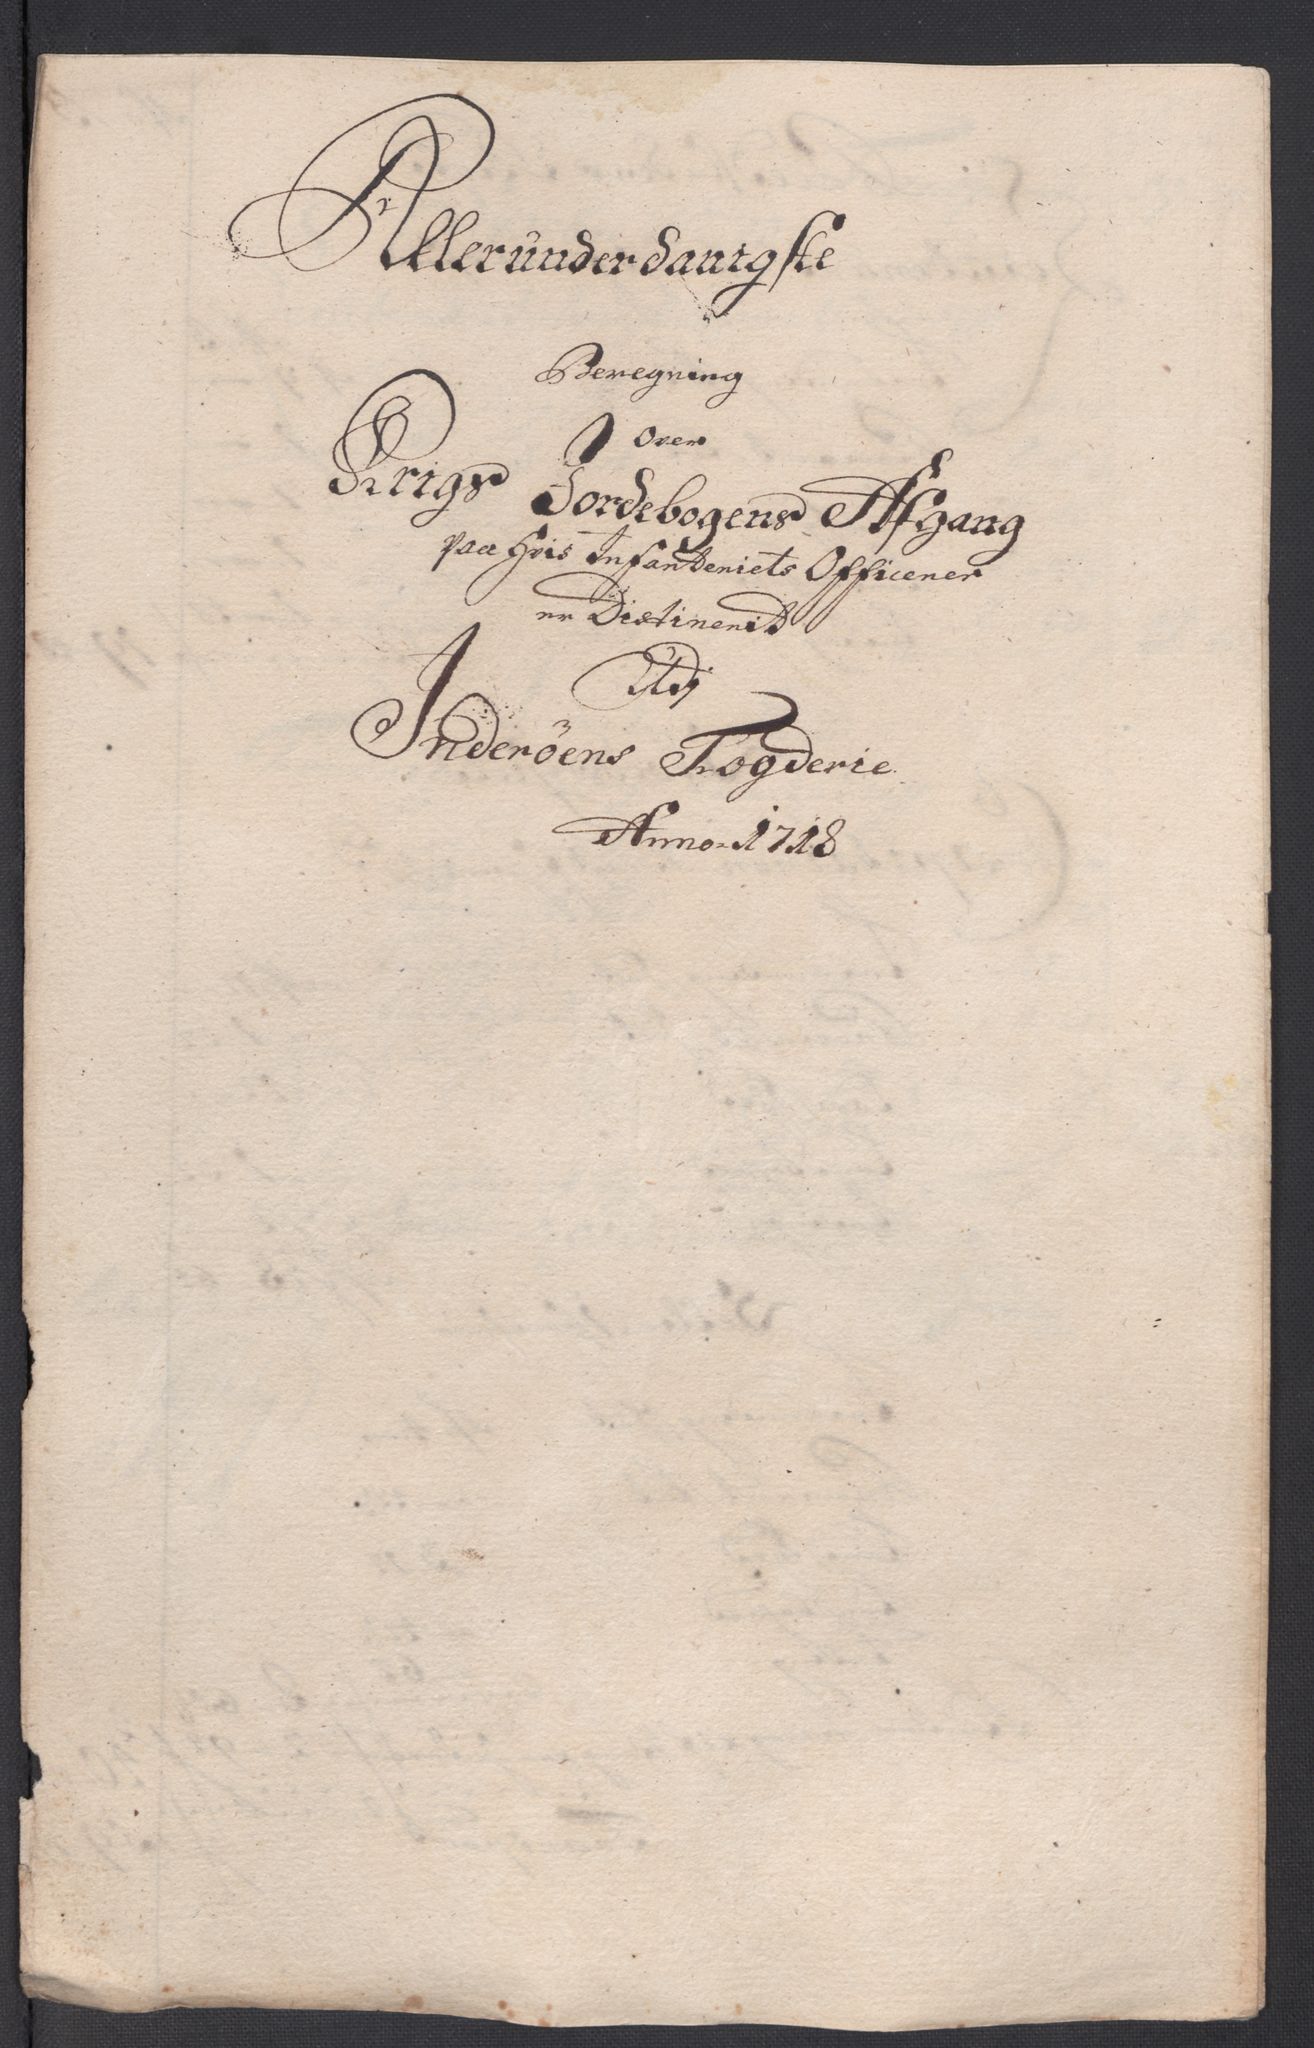 Allerunderdanigste
Beregning
Over
Krigs Jordebogens Afgang
paa hvis Infanteriets Officerer
er Distinerit
Udj
Inderöens Fogderie
Anno 1718